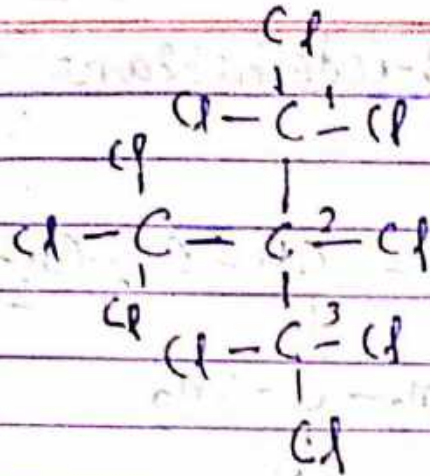 Cl
Cl – C¹ – Cl
Cl
Cl – C – C² – Cl
Cl
Cl – C³ – Cl
Cl